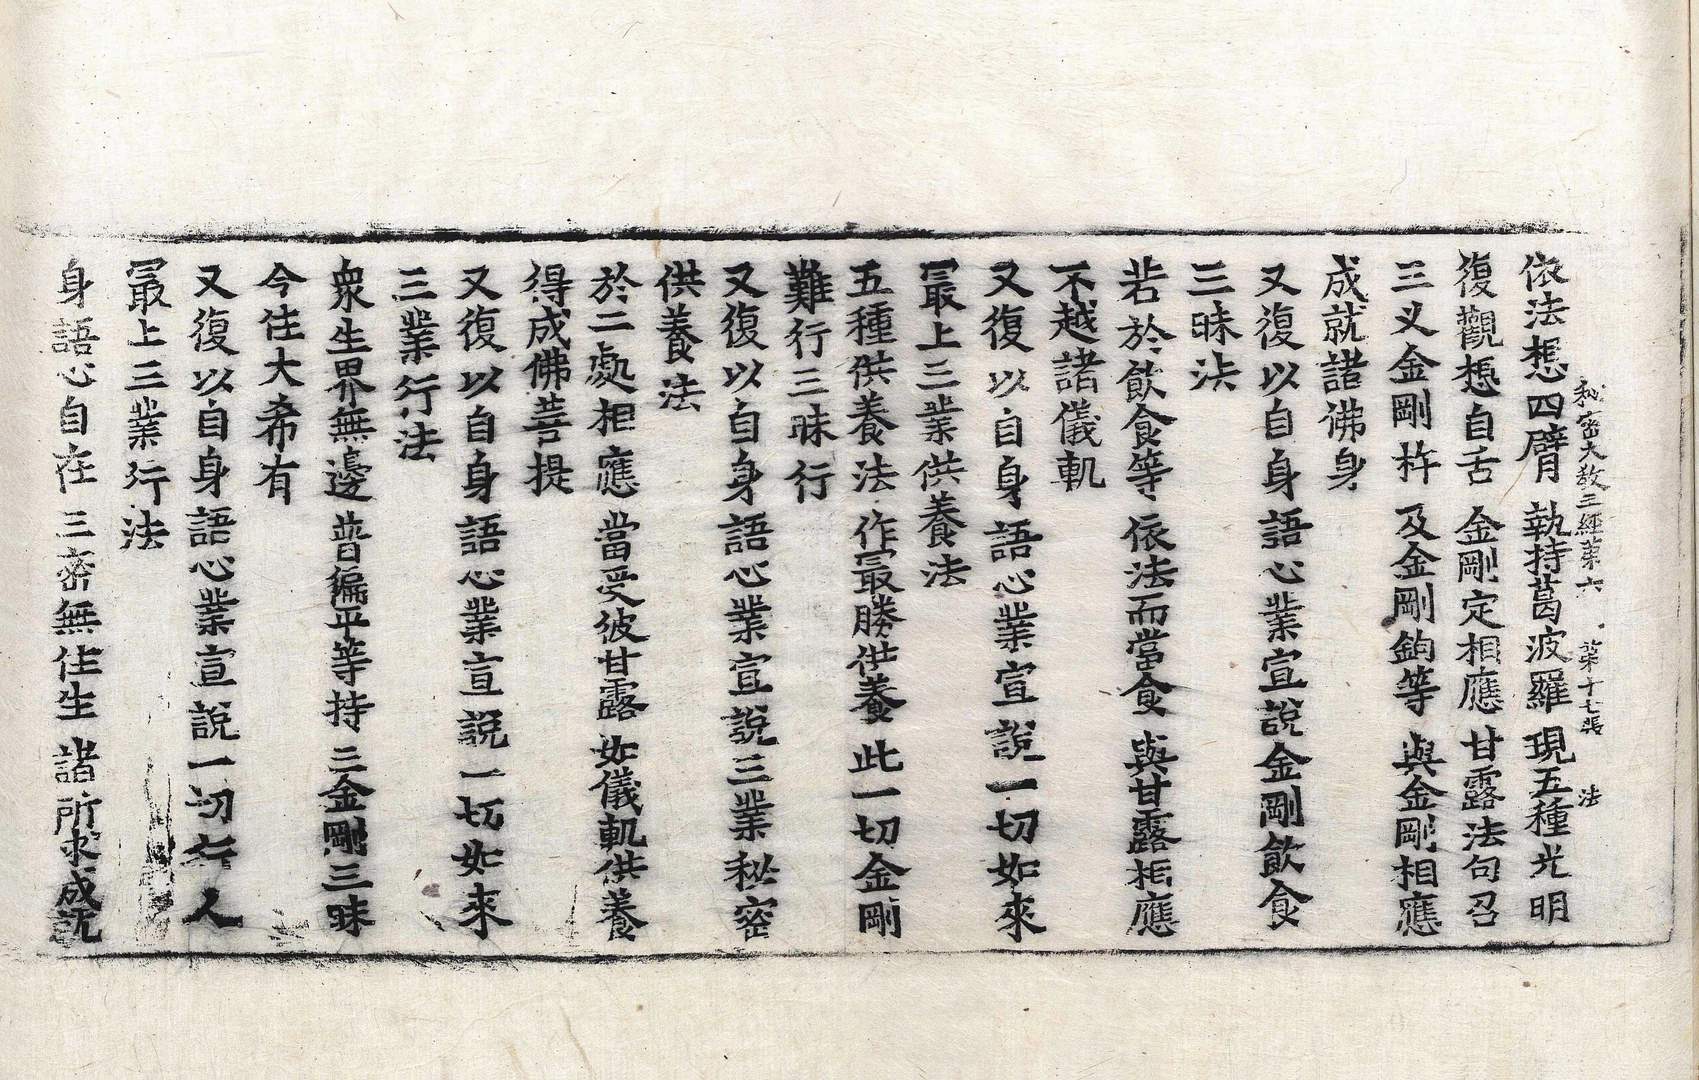 秘密大教王經第六 第十七張 法
依法想四臂 執持葛波羅 現五種光明
復觀想自舌 金剛定相應 甘露法句召
三叉金剛杵 及金剛鉤等 與金剛相應
成就諸佛身
又復以自身語心業宣說金剛飲食
三昧法
若於飲食等 依法而當食 與甘露相應
不越諸儀軌
又復以自身語心業宣說一切如來
冣上三業供養法
五種供養法 作冣勝供養 此一切金剛
難行三昧行
又復以自身語心業宣說三業秘密
供養法
於二處相應 當受彼甘露 如儀軌供養
得成佛菩提
又復以自身語心業宣說一切如來
三業行法
衆生界無邊 普徧平等持 三金剛三昧
今住大希有
又復以自身語心業宣說一切 人
冣上三業行法
身語心自在 三密無住生 諸所求成就